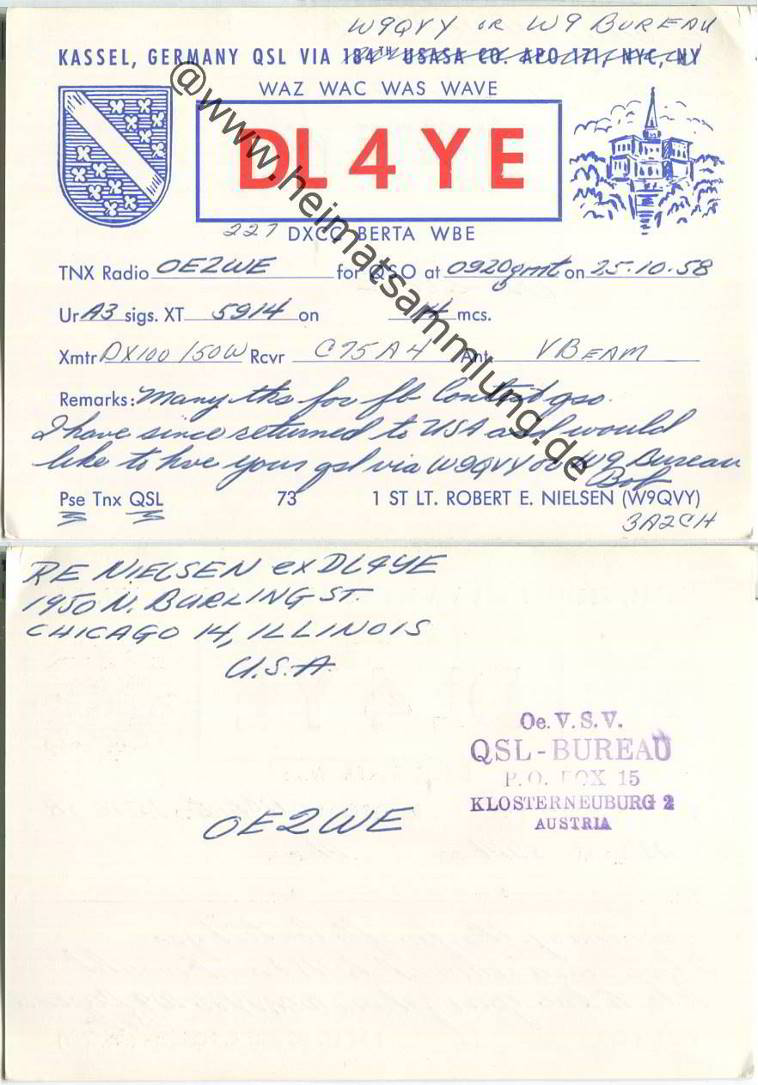 W9QVY or W9 BUREAU
KASSEL, GERMANY QSL VIA 184TH USASA CO. APO 171, NYC, NY
WAZ WAC WAS WAVE
DL4YE
227 DXCC BERTA WBE
TNX Radio OE2WE for QSO at 0920gmt on 25-10-58
Ur A3 sigs. XT 5914 on 14 mcs.
Xmtr DX100 150W Rcvr C75A4 Ant. VBEAM
Remarks: Many tks for fb contest qso.
I have since returned to USA and would
like to hve your qsl via W9QVY or W9 Bureau
Bob
Pse Tnx QSL 73 1 ST LT. ROBERT E. NIELSEN (W9QVY)
3A2CH
@www.heimatsammlung.de
RE NIELSEN ex DL4YE
1950 N. BURLING ST.
CHICAGO 14, ILLINOIS
U.S.A.
Oe. V. S. V.
QSL-BUREAU
P. O. BOX 15
KLOSTERNEUBURG 2
AUSTRIA
OE2WE